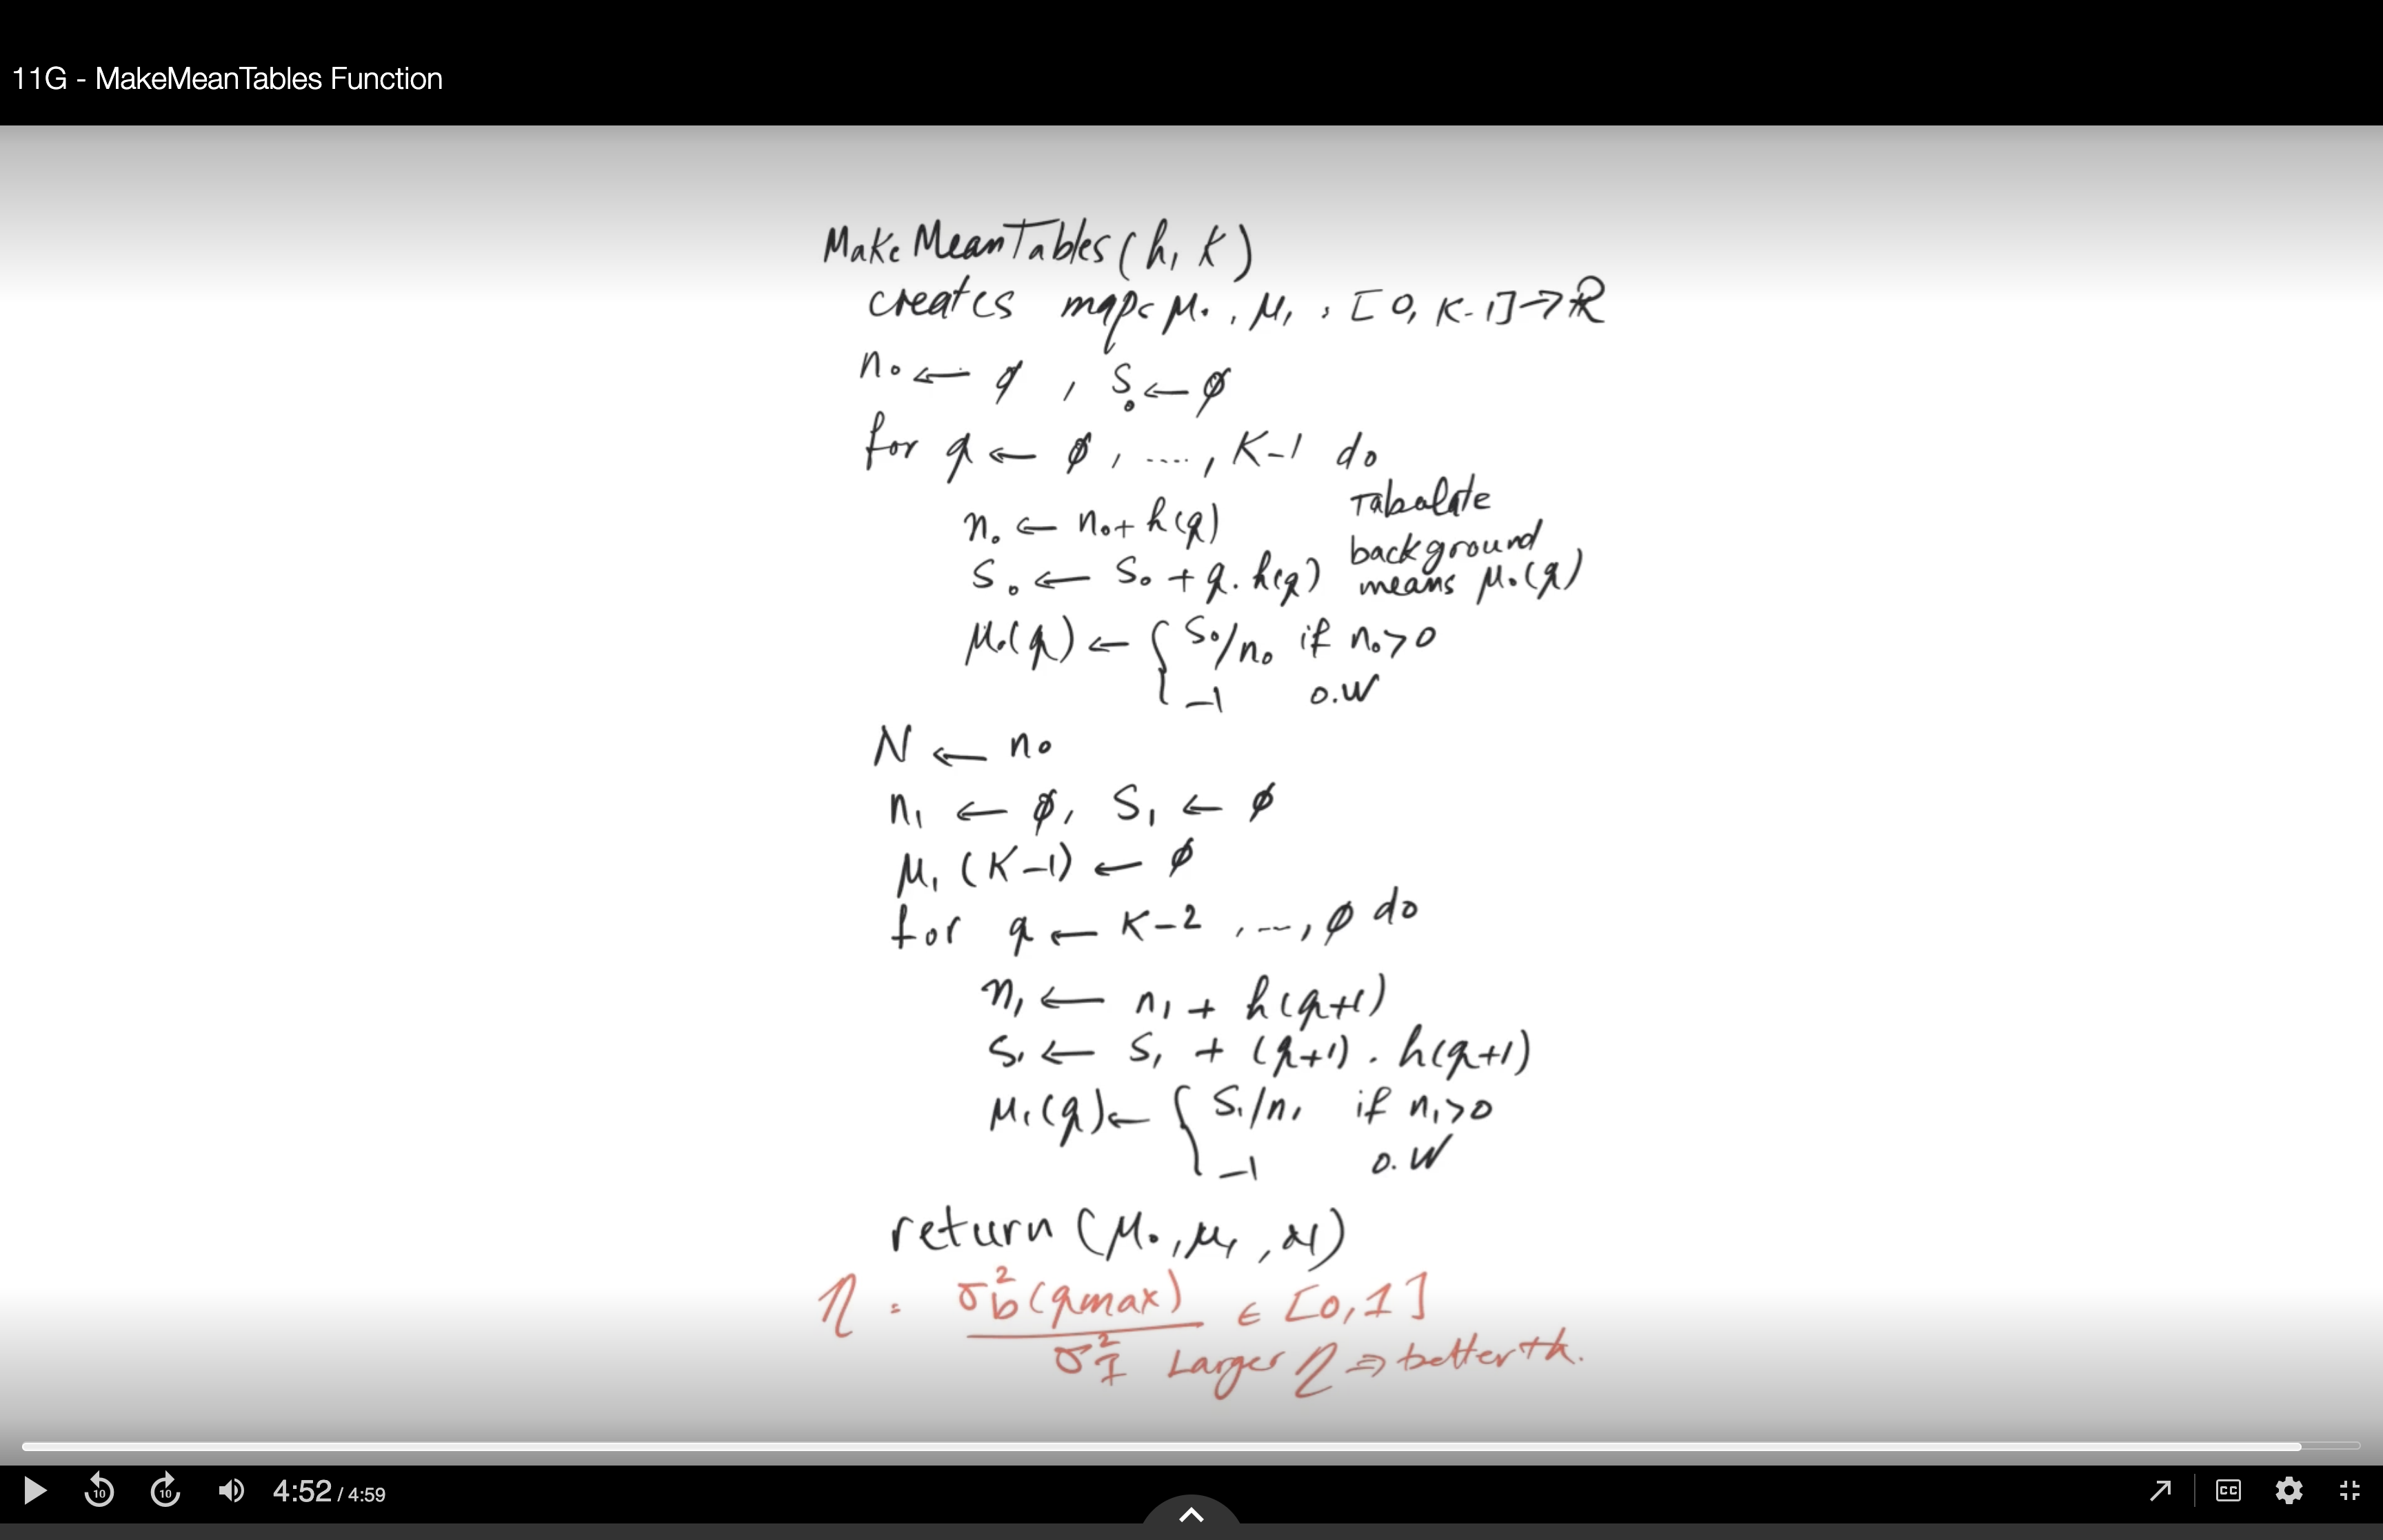 11G - MakeMeanTables Function
MakeMeanTables(h, K)
creates maps μ₀, μ₁ : [0, K-1] → ℝ
n₀ ← ϕ , S₀ ← ϕ
for q ← ϕ, ...., K-1 do
n₀ ← n₀ + h(q) Tabulate
S₀ ← S₀ + q . h(q) background means μ₀(q)
μ₀(q) ← { S₀/n₀ if n₀>0
-1 o.w
N ← n₀
n₁ ← ϕ, S₁ ← ϕ
μ₁(K-1) ← ϕ
for q ← K-2, ..., ϕ do
n₁ ← n₁ + h(q+1)
S₁ ← S₁ + (q+1) . h(q+1)
μ₁(q) ← { S₁/n₁ if n₁>0
-1 o.w
return (μ₀, μ₁, N)
η = σ²b(qmax) / σ²I ∈ [0, 1]
Larger η ⇒ better th.
10 10 4:52 / 4:59 CC